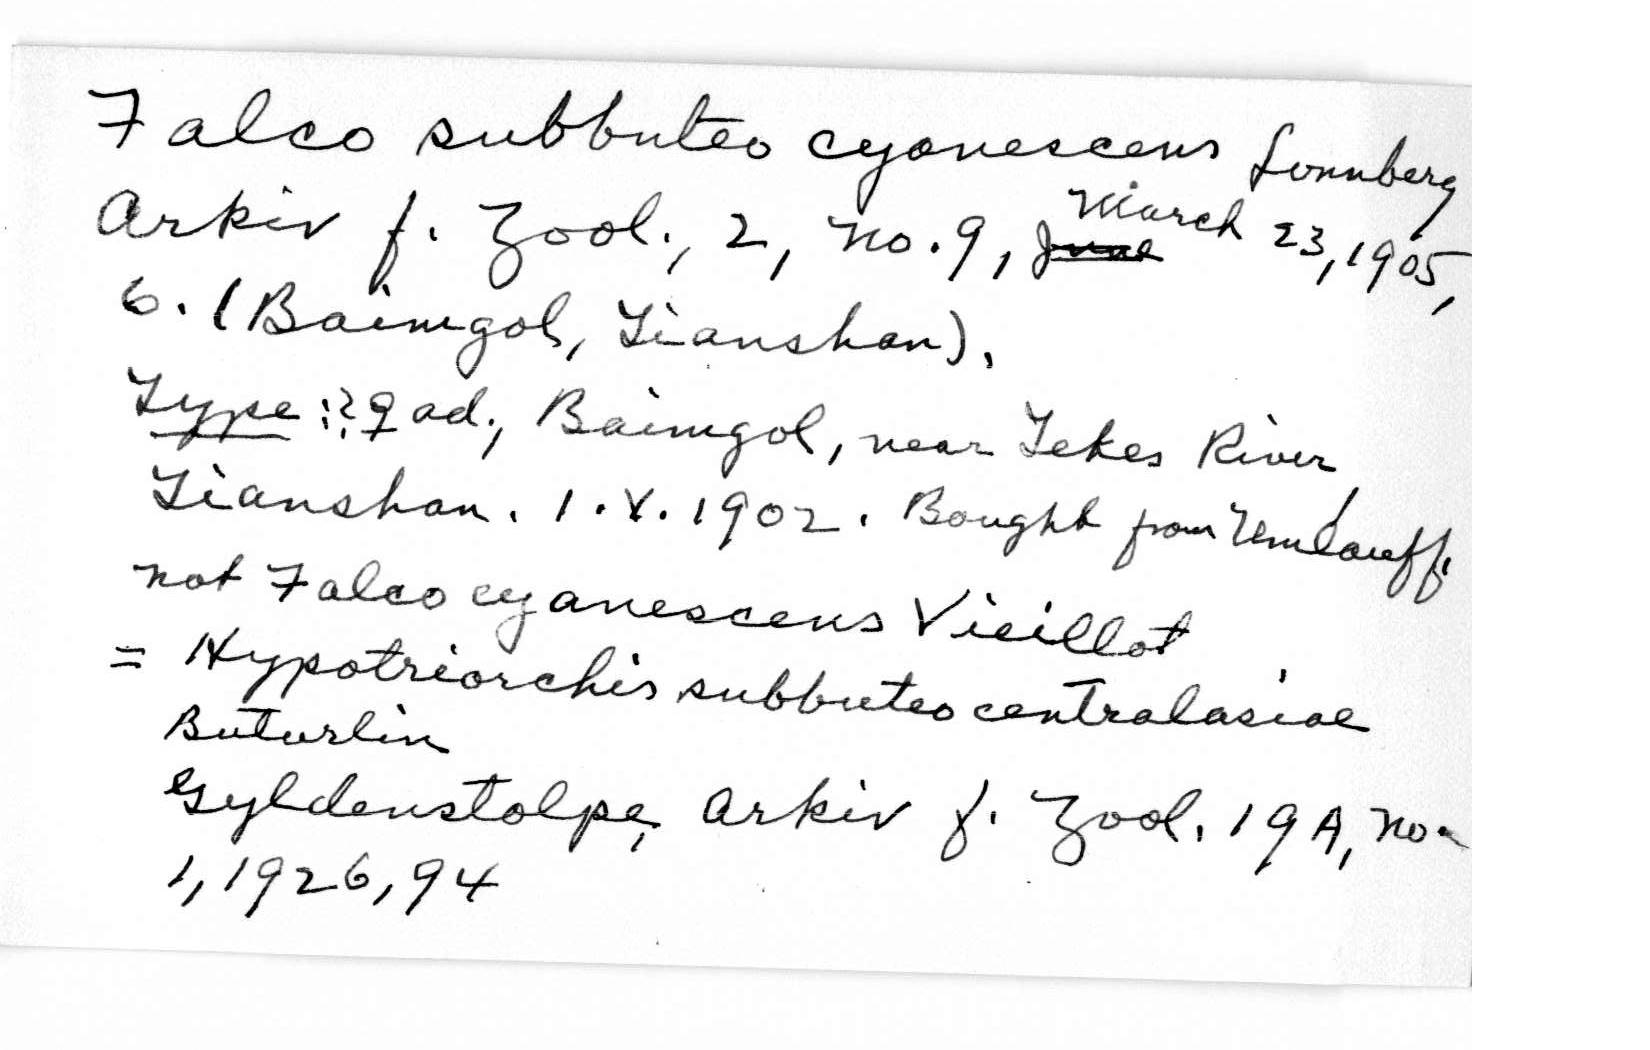 Falco subbuteo cyanescens Lonnberg
Arkiv f. Zool., 2, no. 9, June March 23, 1905,
6. (Baimgol, Tianshan).
Type: ?♀ ad., Baimgol, near Tekes River,
Tianshan. 1.V.1902. Bought from Umlauff.
not Falco cyanescens Vieillot
= Hypotriorchis subbuteo centralasiae
Buturlin
Gyldenstolpe, Arkiv f. Zool. 19A, no.
1, 1926, 94